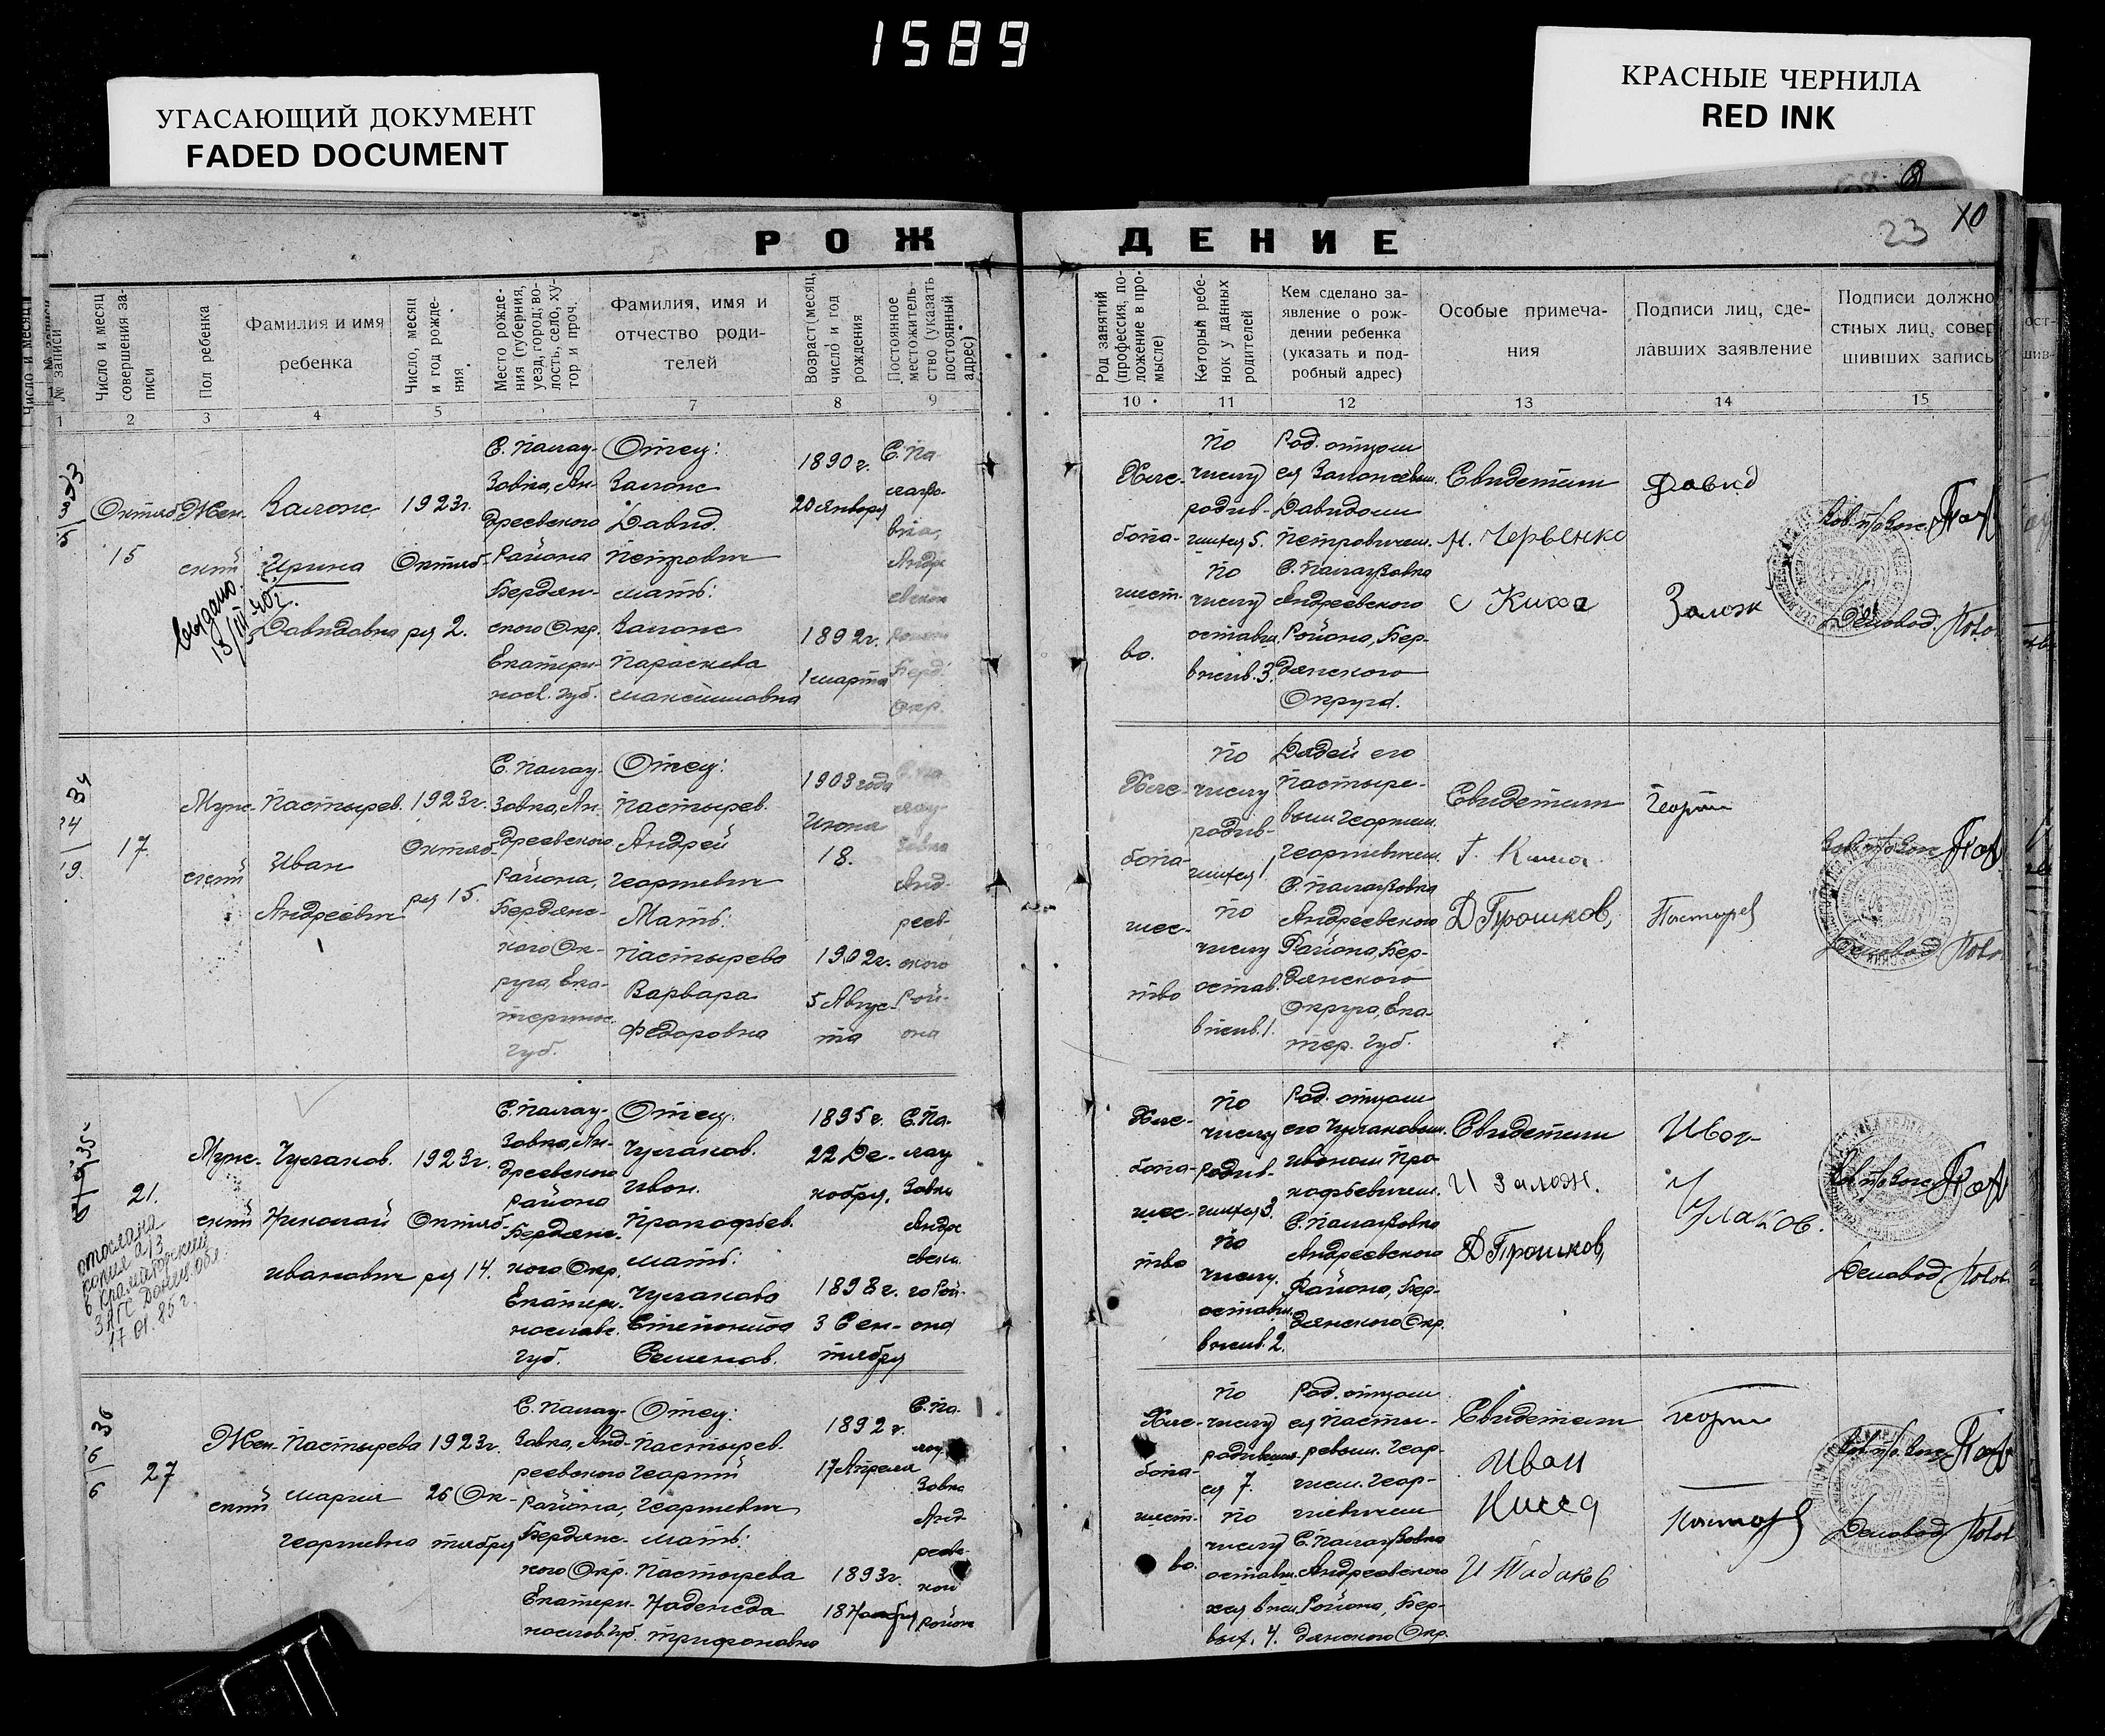 1589
УГАСАЮЩИЙ ДОКУМЕНТ
FADED DOCUMENT
КРАСНЫЕ ЧЕРНИЛА
RED INK
8
23
10
РОЖ
ДЕНИЕ
№ записи
Число и месяц совершения записи
Пол ребенка
Фамилия и имя
ребенка
Число, месяц
и год рожде-
ния
Место рожде-
ния (губерния,
уезд, город, во-
лость, село, ху-
тор и проч.
Фамилия, имя и
отчество роди-
телей
Возраст, месяц,
число и год
рождения
Постоянное
местожитель-
ство (указать
постоянный
адрес)
Род занятий
(профессия, по-
ложение в про-
мысле)
Который ребе-
нок у данных
родителей
Кем сделано за-
явление о рож-
дении ребенка
(указать и под-
робный адрес)
Особые примеча-
ния
Подписи лиц, сде-
лавших заявление
Подписи должно
стных лиц, совер
шивших запись
1 2 3 4 5 6 7 8 9
10 11 12 13 14 15
33
Октяб
15
Жен-
ский
Залож
Ирина
Давидовна
1923г.
Октяб-
ря 2.
С. Палау-
зовка, Ан-
дреевского
Района
Бердян-
ского Окр.
Екатери-
носл. Губ.
Отец:
Залож
Давид
Петрович
мать:
Залож
Параскева
Максимовна
1890 г.
20 Января
1892г.
1 марта
С. Па-
лаузо-
вка,
Андре
евского
района
Берд.
Окр.
Хле-
бопа-
шест-
во.
По
числу
родив-
шихся 5.
По
числу
оставш.
в жив. 3.
Род. отцом
ея Заложевым
Давидом
Петровичем.
С. Палаузовка
Андреевского
Района, Бер-
дянского
Округа.
Свидетели
с Кисса
Давид
Залож
Деловод.
выдано
13/III-40г.
34
17.
Муж-
ский
Пастырев.
Иван
Андреевич
1923г.
Октяб-
ря 15.
С. Палау-
зовка, Ан-
дреевского
Района,
Бердянс-
кого Ок-
руга, Ека-
теринос.
Губ.
Отец:
Пастырев.
Андрей
Георгиевич
Мать:
Пастырева
Варвара
Федоровна
1903 года
Июня
18.
1902г.
5 Авгус-
та
С. Па-
лау-
зовка
Анд-
реев-
ского
Рай-
она
Хле-
бопа-
шес-
тво
По
числу
родив-
шихся 1
По
числу
остав.
в жив. 1.
Дядей его
Пастыре-
вым Георгием
Георгиевичем.
С. Палаузовка
Андреевского
Района, Бер-
дянского
Округа, Ека-
тер. Губ.
Свидетели
Г. Кисса
Д Грошков,
Георги
Пастырев
Деловод
35
21.
Муж-
ский
Чулаков.
Николай
Иванович
1923г.
Октяб-
ря 14.
С. Палау-
зовка, Ан-
дреевского
района
Бердянс-
кого Окр.
Екатери-
нославс.
Губ.
Отец:
Чулаков.
Иван.
Прокофьев.
мать:
Чулакова
Степанида
Семенов.
1895 г.
22 Де-
кабря,
1898 г.
3 Сен-
тября
С. Па-
лау
зовка
Андре
евск.
го Рай-
она
Хле-
бопа-
шес-
тво
По
числу
родив-
шихся 3.
По
числу.
оставш.
в жив. 2.
Род. отцом
его Чулаковым
Иваном Про-
кофьевичем.
С. Палаузовка
Андреевского
Района, Бер-
дянского Окр.
Свидетели
И Залож.
Д Грошков,
Иван
Чулаков.
Деловод
отослана
копия а/з
в Краматорский
ЗАГС Донецк. обл.
17.01.85 г.
36
27
Жен-
ский
Пастырева
Мария
Георгиевна
1923г.
26 Ок-
тября
С. Палау-
зовка, Анд-
реевского
Района,
Бердянс-
кого Окр.
Екатери-
нослов. Губ.
Отец:
Пастырев.
Георгий
Георгиевич
мать:
Пастырева
Надежда
Трифоновна
1892 г.
17 Апреля
1893г.
18 Ноября
С. Па-
лау
зовка
Анд-
реевс-
кого
района
Хле-
бопа-
шест-
во.
По
числу
родивших-
ся 7.
По
числу
оставш.
ися в жи
вых. 4.
Род. отцом
ея Пасты-
ревым. Геор-
гием. Геор-
гиевичем
С. Палаузовка
Андреевского
Района, Бер-
дянского Окр.
Свидетели
Иван
Кисса
И Табаков
Георги
Пастырев
Деловод